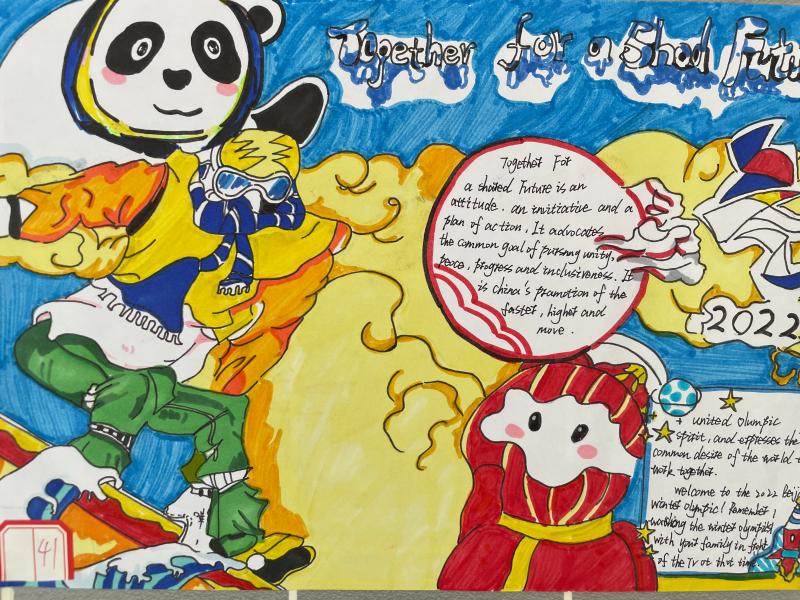 Together for a Shad Futu
Together For
a shated Future is an
attitude. an invitiative and a
plan of action, It advocates
the common goal of pursung unity,
peace, progress and inclusiveness. It
is China's promotion of the
faster, higher and
move.
2022
+ united Olumpic
spirit, and expresses the
common desire of the world t
work together.
welcome to the 2022 Beij
winter olympic! Remember!
watching the winter olympics
with your family in front
of the Tv at that time.
41